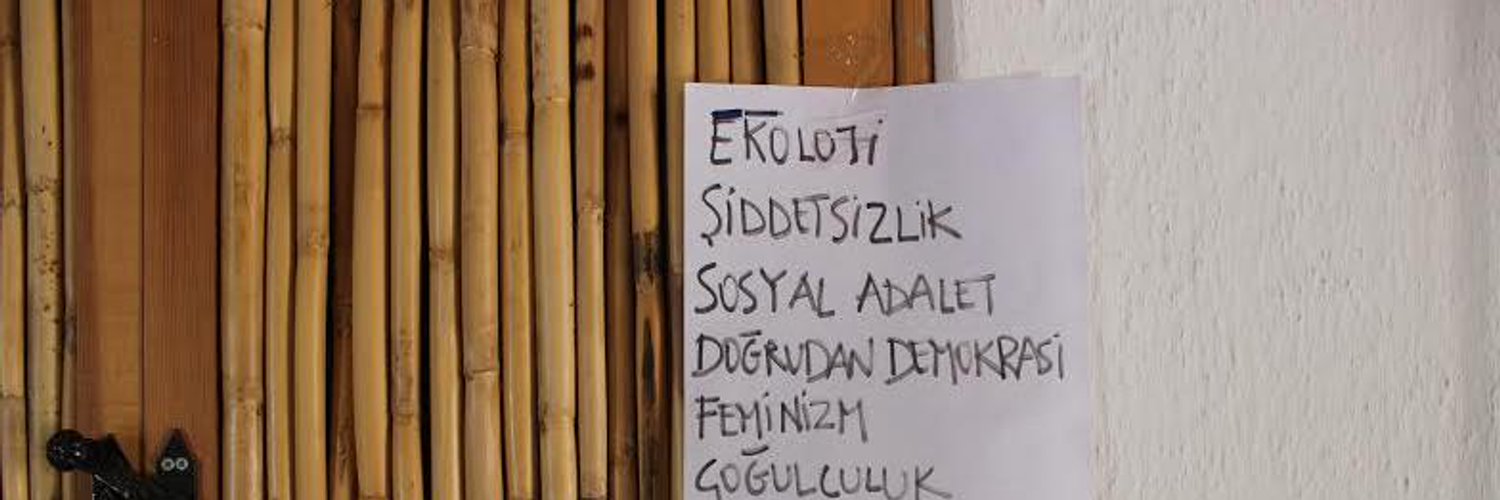 EKOLOJi
ŞiDDETSiZLiK
SOSYAL ADALET
DOĞRUDAN DEMOKRASi
FEMiNiZM
ÇOĞULCULUK